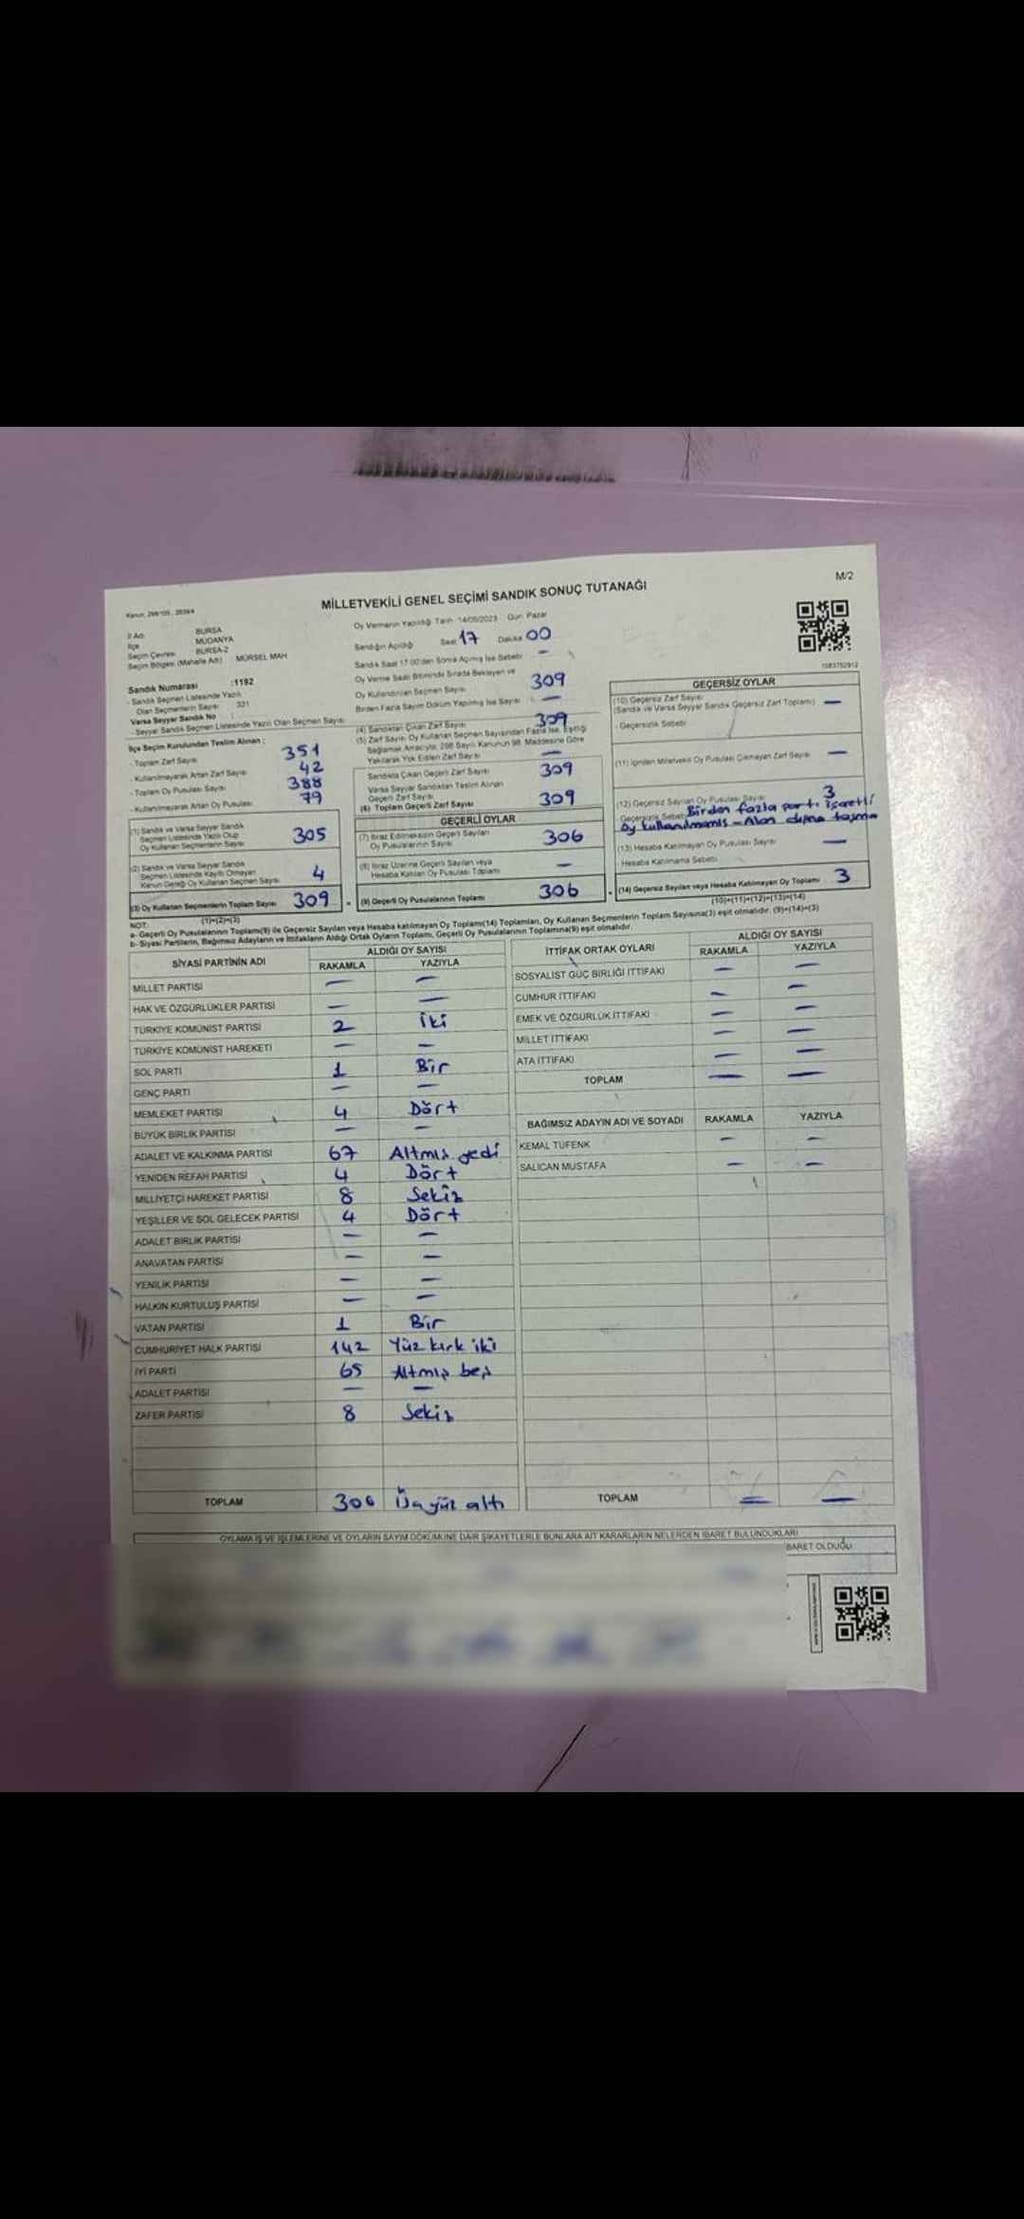 M/2
Kanun: 298/105, 2839/4
MİLLETVEKİLİ GENEL SEÇİMİ SANDIK SONUÇ TUTANAĞI
İl Adı BURSA
İlçe MUDANYA
Seçim Çevresi BURSA-2
Seçim Bölgesi (Mahalle Adı) MÜRSEL MAH
Oy Vermenin Yapıldığı Tarih 14/05/2023 Gün Pazar
Sandığın Açıldığı Saat 17 Dakika 00
Sandık Saat 17:00'den Sonra Açılmış İse Sebebi —
Oy Verme Saati Bitiminde Sırada Bekleyen ve
Oy Kullandırılan Seçmen Sayısı 309
Birden Fazla Sayım Döküm Yapılmış İse Sayısı : —
Sandık Numarası :1192
- Sandık Seçmen Listesinde Yazılı
Olan Seçmenlerin Sayısı 331
Varsa Seyyar Sandık No :
- Seyyar Sandık Seçmen Listesinde Yazılı Olan Seçmen Sayısı
İlçe Seçim Kurulundan Teslim Alınan :
- Toplam Zarf Sayısı 351
- Kullanılmayarak Artan Zarf Sayısı 42
- Toplam Oy Pusulası Sayısı 388
- Kullanılmayarak Artan Oy Pusulası 79
(1) Sandık ve Varsa Seyyar Sandık
Seçmen Listesinde Yazılı Olup
Oy Kullanan Seçmenlerin Sayısı 305
(2) Sandık ve Varsa Seyyar Sandık
Seçmen Listesinde Kayıtlı Olmayan
Kanun Gereği Oy Kullanan Seçmen Sayısı 4
(3) Oy Kullanan Seçmenlerin Toplam Sayısı 309
(1)+(2)=(3)
(4) Sandıktan Çıkan Zarf Sayısı 309
(5) Zarf Sayısı Oy Kullanan Seçmen Sayısından Fazla İse, Eşitliği
Sağlamak Amacıyla, 298 Sayılı Kanunun 98. Maddesine Göre
Yakılarak Yok Edilen Zarf Sayısı —
Sandıkta Çıkan Geçerli Zarf Sayısı 309
Varsa Seyyar Sandıktan Teslim Alınan
Geçerli Zarf Sayısı
(6) Toplam Geçerli Zarf Sayısı 309
GEÇERLİ OYLAR
(7) İtiraz Edilmeksizin Geçerli Sayılan
Oy Pusulalarının Sayısı 306
(8) İtiraz Üzerine Geçerli Sayılan veya
Hesaba Katılan Oy Pusulası Toplamı —
(9) Geçerli Oy Pusulalarının Toplamı 306
GEÇERSİZ OYLAR
(10) Geçersiz Zarf Sayısı
(Sandık ve Varsa Seyyar Sandık Geçersiz Zarf Toplamı) —
- Geçersizlik Sebebi
(11) İçinden Milletvekili Oy Pusulası Çıkmayan Zarf Sayısı —
(12) Geçersiz Sayılan Oy Pusulası Sayısı 3
Geçersizlik Sebebi Birden fazla parti işaretli
oy kullanılmamış - Alan dışına taşma
(13) Hesaba Katılmayan Oy Pusulası Sayısı —
- Hesaba Katılmama Sebebi
(14) Geçersiz Sayılan veya Hesaba Katılmayan Oy Toplamı 3
(10)+(11)+(12)+(13)=(14)
NOT:
a- Geçerli Oy Pusulalarının Toplamı(9) ile Geçersiz Sayılan veya Hesaba katılmayan Oy Toplamı(14) Toplamları, Oy Kullanan Seçmenlerin Toplam Sayısına(3) eşit olmalıdır. (9)+(14)=(3)
b- Siyasi Partilerin, Bağımsız Adayların ve İttifakların Aldığı Ortak Oyların Toplamı, Geçerli Oy Pusulalarının Toplamına(9) eşit olmalıdır.
SİYASİ PARTİNİN ADI ALDIĞI OY SAYISI
RAKAMLA YAZIYLA
MİLLET PARTİSİ — —
HAK VE ÖZGÜRLÜKLER PARTİSİ — —
TÜRKİYE KOMÜNİST PARTİSİ 2 iki
TÜRKİYE KOMÜNİST HAREKETİ — —
SOL PARTİ 1 Bir
GENÇ PARTİ — —
MEMLEKET PARTİSİ 4 Dört
BÜYÜK BİRLİK PARTİSİ — —
ADALET VE KALKINMA PARTİSİ 67 Altmış yedi
YENİDEN REFAH PARTİSİ 4 Dört
MİLLİYETÇİ HAREKET PARTİSİ 8 Sekiz
YEŞİLLER VE SOL GELECEK PARTİSİ 4 Dört
ADALET BİRLİK PARTİSİ — —
ANAVATAN PARTİSİ — —
YENİLİK PARTİSİ — —
HALKIN KURTULUŞ PARTİSİ — —
VATAN PARTİSİ 1 Bir
CUMHURİYET HALK PARTİSİ 142 Yüz kırk iki
İYİ PARTİ 65 Altmış beş
ADALET PARTİSİ — —
ZAFER PARTİSİ 8 Sekiz
TOPLAM 306 Üçyüz altı
İTTİFAK ORTAK OYLARI ALDIĞI OY SAYISI
RAKAMLA YAZIYLA
SOSYALİST GÜÇ BİRLİĞİ İTTİFAKI — —
CUMHUR İTTİFAKI — —
EMEK VE ÖZGÜRLÜK İTTİFAKI — —
MİLLET İTTİFAKI — —
ATA İTTİFAKI — —
TOPLAM — —
BAĞIMSIZ ADAYIN ADI VE SOYADI RAKAMLA YAZIYLA
KEMAL TÜFENK — —
SALİCAN MUSTAFA — —
TOPLAM — —
OYLAMA İŞ VE İŞLEMLERİNE VE OYLARIN SAYIM DÖKÜMÜNE DAİR ŞİKAYETLERLE BUNLARA AİT KARARLARIN NELERDEN İBARET BULUNDUKLARI
İBARET OLDUĞU